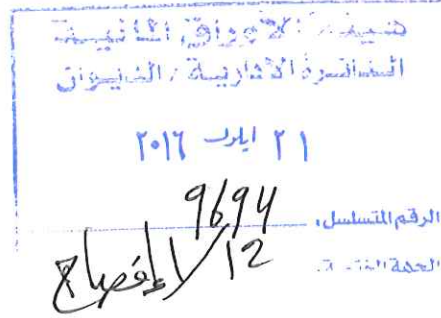 هيئة الأوراق المالية
الدائرة الادارية / الديوان
٢١ ايلول ٢٠١٦
الرقم المتسلسل، 9694
12 / الإفصاح
الجهة